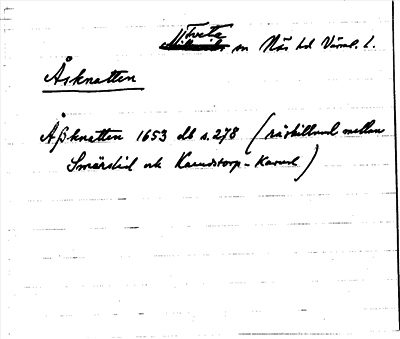 Tveta
sn Näs hd Värml. l.
Åsknatten
Åßknatten 1653 db s. 278 (råskillnad mellan
Smårstid och Karudstorp - Karud)